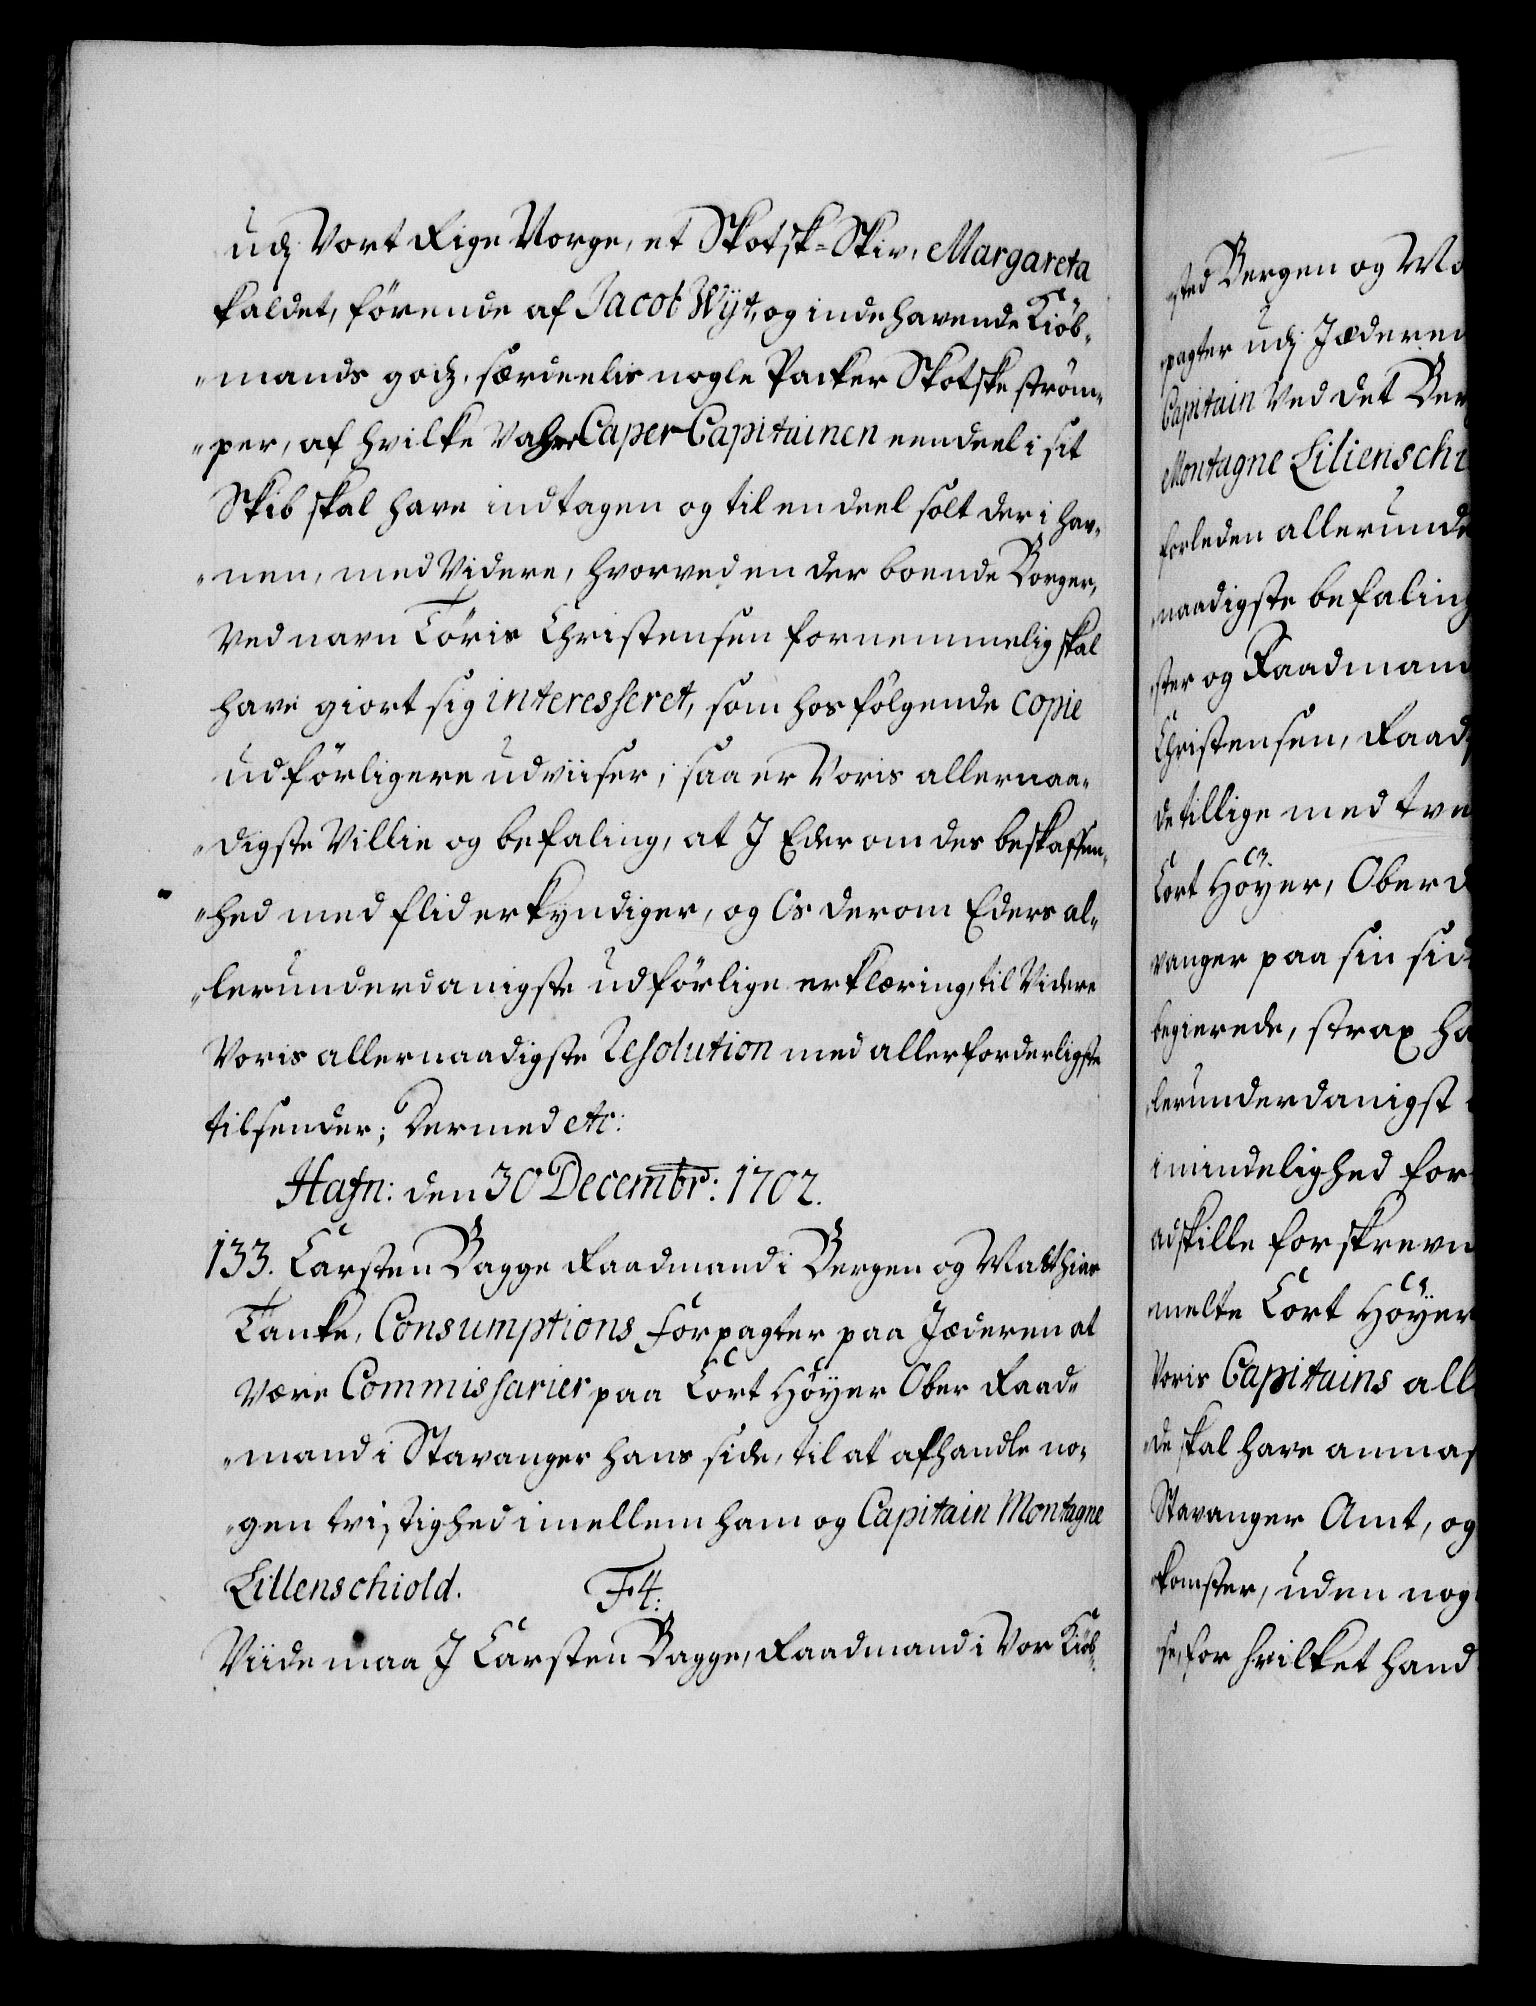 udj Vort Rige Norge, et Skotsk-Skiv, Margareta
kaldet, förende af Jacob Wijt, og indehavende Kiöb-
"mands godz, særdeelis nogle Packer Skotske ström-
"per, af hvilke Vahre Caper Capitainen eendeel i sit
Skib skal have indtagen og til en deel solt der i hav-
"nen, med Videre, hvorved en der boende Borger,
Ved navn Töris Christensen fornemmelig skal
have giort sig interesseret, som hos fölgende copie
udförligere udviiser; saa er Voris allernaa-
"digste Villie og befaling, at J Eder om des beskaffen-
"hed med flid erkyndiger, og Os derom Eders al-
"lerunderdanigste udförlige erklæring, til Videre
Voris allernaadigste Resolution med allerforderligste
tilsender; Dermed etc:
Hafn: den 30 Decembr: 1702.
133. Carsten Bagge Raadmand i Bergen og Matthias
Tanke, Consumptions Forpagter paa Jæderen at
Være Commissarier paa Cort Höyer Ober Raad-
"mand i Stavanger hans side, til at afhandle no-
"gen tvistighed imellem ham og Capitain Montagne
Lillenschiold. F4:
Viide maa J Carsten Bagge, Raadmand i Vor Kiöb-
sted Bergen og Ma
"pagter udj Jæderen
Capitain Ved det Ber
Montagne Liliensch
forleden allerunde
"naadigste befaling
"ster og Raadmand
Christensen, Raad
de tillige med tve
Cort Höyer, Ober
vanger paa sin sid
begierede, strax ha
"lerunderdanigst
i mindelighed for
adskille forskrevn
melte Cort Höyer
Voris Capitains all
"de skal have anmas
Stavanger Amt, og
"komster, uden nog
"se, for hvilket hand